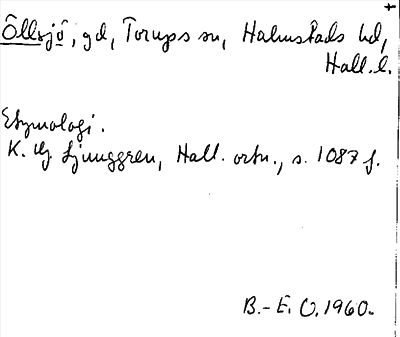 Öllsjö, gd, Torups sn, Halmstads hd,
Hall. l.
Etymologi.
K. G. Ljunggren, Hall. ortn., s. 1087 f.
B.-E. O. 1960.